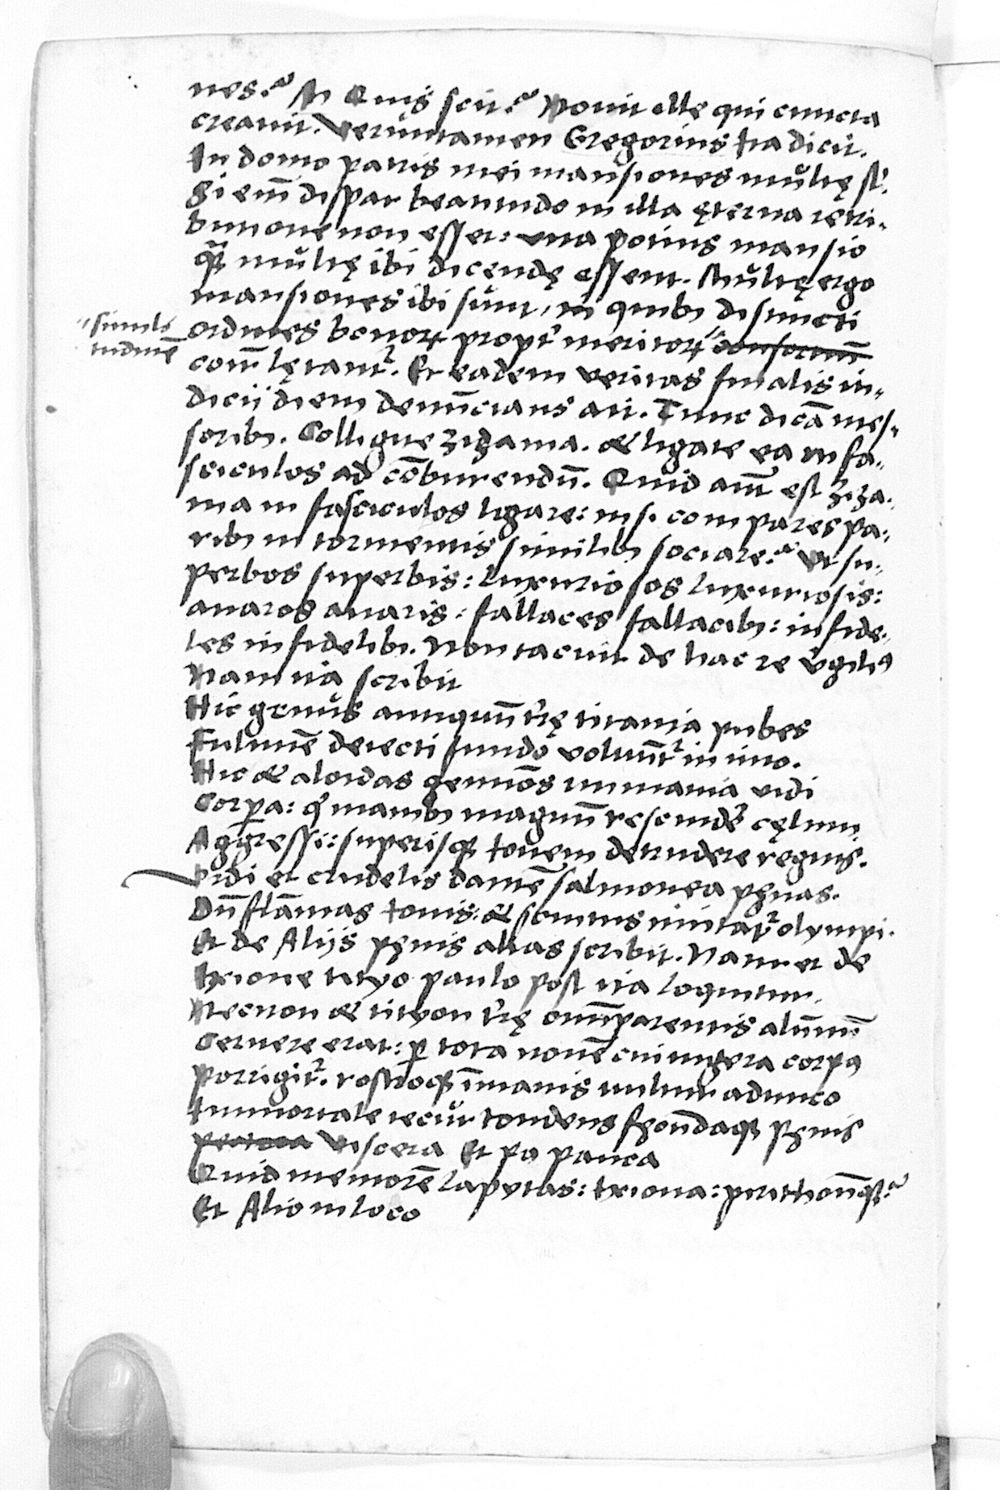 nes.? At Quis scit? Nouit ille qui cuncta
creauit. Verũntamen Gregorius Ita dicit.
In domo patris mei mansiones multę sũt.
Si eni᷈ dispar beatitudo in illa ęterna retri-
butione non esset: vna potius mansio
q᷈ multę ibi dicendę essent. Multę ergo
mansiones ibi sunt, in quibꝫ distincti
ordines bonoꝝ propt᷑ meritoꝝ consortiũ
"simili
tudinē
com᷈lętant᷑. Et eadem veritas finalis iu-
dicij diem denũcians ait. Tunc dicã mes-
soribꝫ. Colligite zizania. & ligate ea in fa-
sciculos ad cõburendũ. Quid aũt est ziza-
nia in fasciculos ligare: nisi compares pa-
ribꝫ in tormentis similibꝫ sociare? Vt su-
perbos superbis: luxuriosos luxuriosis:
auaros auaris: fallaces fallacibꝫ: infide-
les infidelibꝫ. Non tacuit de hac re v̊giliꝰ
Nam ita scribit
Hic genus antiquũ t᷑rę titania pubes
Fulminē deiecti fundo voluunt᷑ in imo.
Hic & aloidas geminõs immania vidi
Corpa: q᷑ manibꝫ magnũ rescinde᷑ cęlum
Aggressi: superisqꝫ Iouem detrudere regnis.
Vidi et crudelis dantē salmonea pęnas.
Dũ flãmas Iouis: & sonitus imitat᷑ olympi.
Et de Alijs pęnis alias scribit. Nam et de
Ixione tityo paulo post ita loquitur.
Necnon & tityon t᷑rę omni᷈parentis alũnũ
Cernere erat: ꝑ tota nouē cui iugera corpꝰ
Porrigit᷑. rostroqꝫ ĩmanis vultur adunco
Immortale iecur tondens fęcũdaqꝫ pęnis
pectora viscera Et po pauca
Quid memorē lapytas: Ixiona: pirithoũqꝫ?
Et Alio in loco